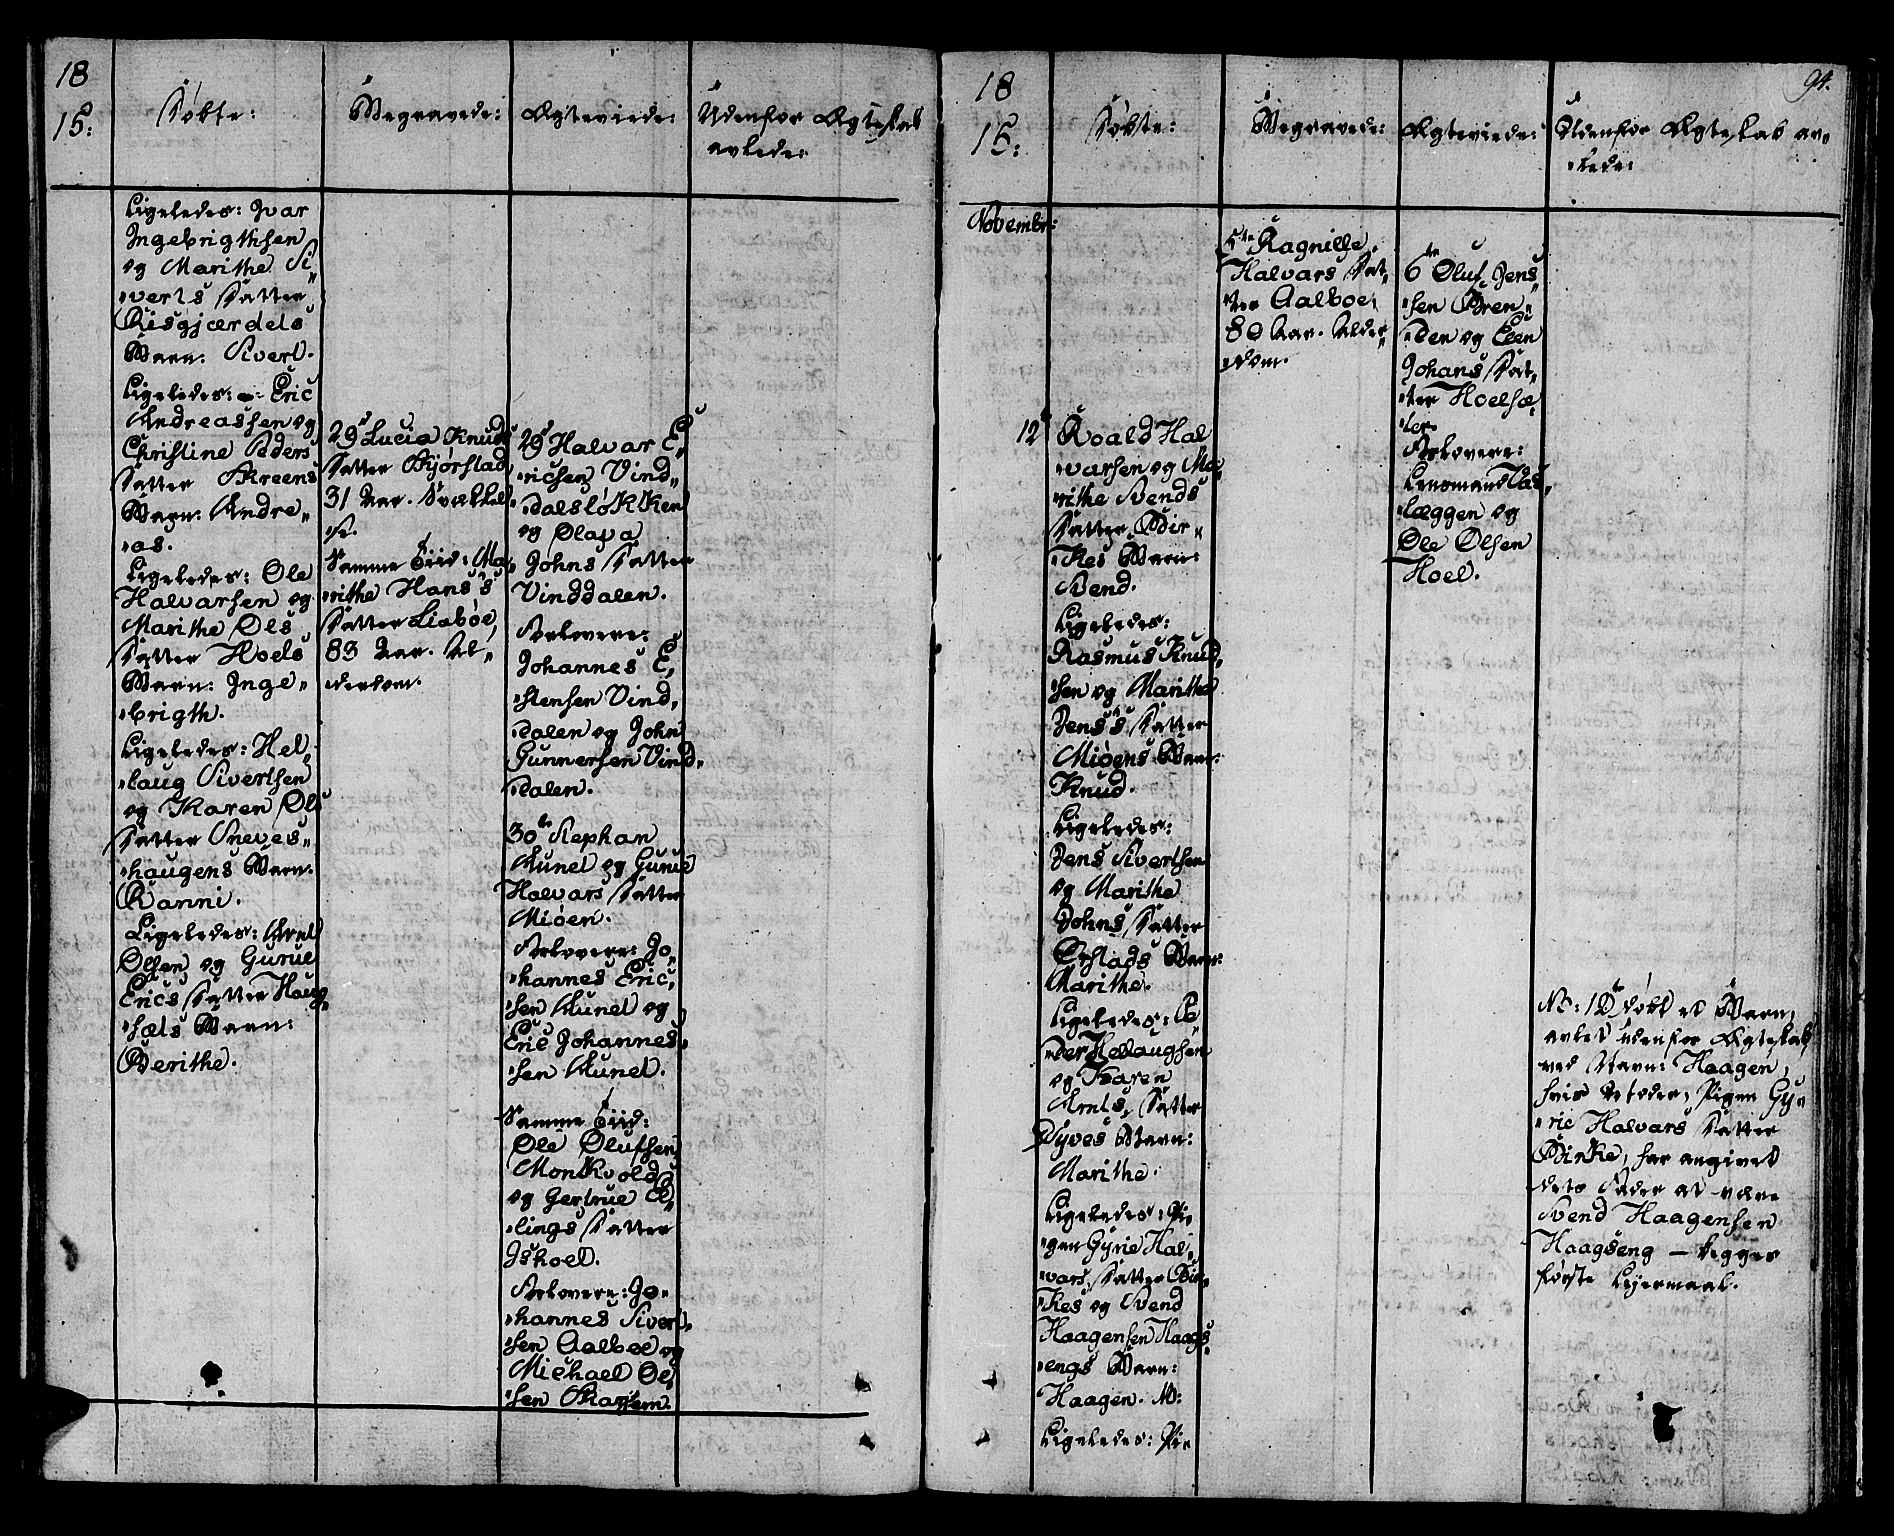 18
15:
Døbte:
Begravede:
Ægteviede:
Udenfor Ægteskab
avlede:
Ligeledes: Ivar
Ingebrigthsen
og Marithe Si„
„verts Datter
Risgjærdets
Barn: Sivert.
Ligeledes: Eric
Andreassen og
Christine Peders
Datter Skreens
Barn: Andre„
„as.
Ligeledes: Ole
Halvarsen og
Marithe Ols
Datter Hoels
Barn: Inge„
„brigth.
Ligeledes: Hel„
„laug Sivertsen
og Karen Ols
Datter Sneves„
„haugens Barn:
Ranni.
Ligeledes: Arnt
Olsen og Gurue
Erics Datter Haug„
„sæts Barn:
Berithe.
29 Lucia Knuds
Datter Bjørstad,
31 Aar. Svækkel„
„se.
Samme Tiid: Ma„
„rithe Hans's
Datter Liabøe,
83 Aar. Al„
„derdom.
29 Halvar E„
„ricsen Vind„
„dalsløkken
og Olava
Johns Datter
Vinddalen.
Forlovere:
Johannes E„
„stensen Vind„
„dalen og John
Gunnersen Vind„
„dalen.
30te Stephan
Aunet og Gurue
Halvars Datter
Miøen.
Forlovere: Jo„
„hannes Eric„
„sen Aunet og
Eric Johannes„
„sen Aunet.
Samme Tiid:
Ole Olufsen
Monkvold
og Gertrue El„
„lings Datter
Ishoel.
Forlovere: Jo„
„hannes Sivert„
„sen Aalboe og
Michael Ol„
„sen
94.
18
15:
Døbte:
Begravede:
Ægteviede:
Udenfor Ægteskab av„
„lede:
Novembr:
12 Roald Hal
„varsen og Ma„
„rithe Svends
Datter Bir„
„kes Barn:
Svend.
Ligeledes:
Rasmus Knud„
„sen og Marithe
Jens's Datter
Miøens Barn:
Knud.
Ligeledes:
Jens Sivertsen
og Marithe
Johns Datter
Ørstads Barn:
Marithe.
Ligeledes: Pe„
„der Hellaugsen
og Karen
Arnts Datter
Dyves Barn:
Marithe.
Ligeledes: Pi„
„gen Gyrie Hal„
„vars Datter Bir„
„kes og Svend
Haagensen Haags„
„engs Barn:
Haagen. No:
Ligeledes: Pi„
5te Ragnille
Halvars Dat„
„ter Aalboe,
80 Aar. Alder„
„dom.
6te Oluf Jens„
„sen Bren„
„den og Elen
Johans Dat„
„ter Hoelsæ„
„ter.
Forlovere:
Lensmand Vad„
„læggen og
Ole Olsen
Hoel.
No: 12 døbt et Barn,
avlet udenfor Ægteskab,
ved Navn: Haagen,
hvis Moder, Pigen Gy„
„rie Halvars Datter
Birke, har angivet
dets Fader at være
Svend Haagensen
Haagseng — begges
første Leiermaal.